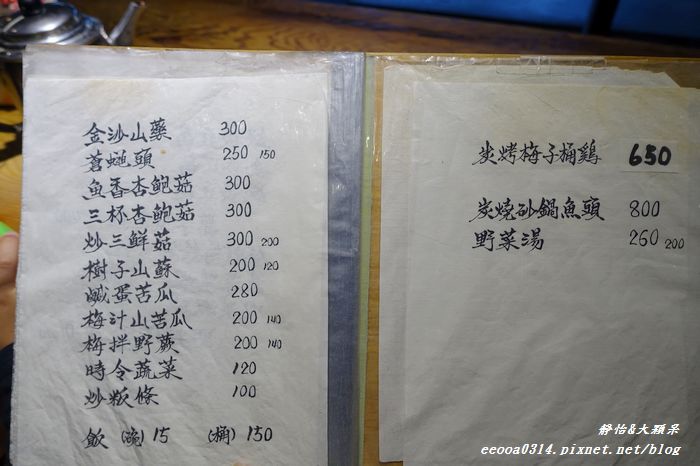 金沙山藥 300
蒼蠅頭 250 150
魚香杏鮑菇 300
三杯杏鮑菇 300
炒三鮮菇 300 200
樹子山蘇 200 120
鹹蛋苦瓜 280
梅汁山苦瓜 200 140
梅拌野蕨 200 140
時令蔬菜 120
炒粄條 100
飯 (碗) 15 (桶) 150
炭烤梅子桶鷄 650
炭燒砂鍋魚頭 800
野菜湯 260 200
靜怡&大顆呆
eeooa0314.pixnet.net/blog